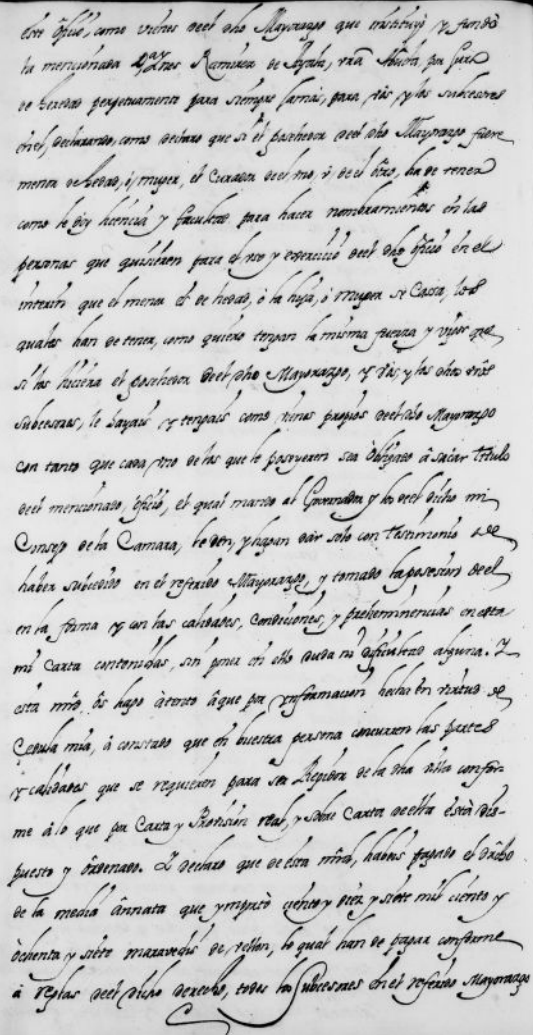 este oficio, como vienes deel dho Mayorazgo que instituyó y fundó
la mencionada Ramirez de Ayala, vra Abuela, por Juro
de heredad perpetuamente para siempre jamás, para vos y los subcesores
en el, declarando, como declaro que si el posehedor deel dho Mayorazgo fuere
menor de hedad, ó muger, el Curador deel vno, ó, de el otro, ha de tener
como le doy licencia y facultad para hacer nombramientos en las
personas que quisieren para el vso y exercicio deel dho oficio en el
interin que el menor es de hedad, ó la hija, ó muger se Cassa, los
quales han de tener, como quiero tengan la misma fuerza y vigor que
si los hiciera el posehedor deel dho Mayorazgo, y vos y los dhos vros
subcesores, le hayais y tengais como vienes propios deel dho Mayorazgo
con tanto que cada vno de los que le posoyeren sea obligado á sacar Titulo
deel mencionado, oficio, el qual mando al Governador y los deel dicho mi
Consejo de la Camara, le den, y hagan dar solo con Testimonio de
haber subcedido en el referido Mayorazgo, y tomado la posesion deel
en la forma y con las calidades, Condiciones, y preheminencias en esta
mi Carta contenidas, sin poner en ello duda ni dificultad alguna. Y
esta mrd os hago atento á que por Ynformacion hecha en virtud de
Cedula mia, á constado que en vuestra persona concurren las partes
y calidades que se requieren para ser Regidor de la dha villa confor-
me á lo que por Carta y Provision real, y sobre Carta deella está dis-
puesto y ordenado. Y declaro que de esta mrd, habeis pagado el drcho
de la media annata que ymportó ciento y diez y siete mil ciento y
ochenta y siete maravedis de vellon, lo qual han de pagar conforme
á reglas deel dicho derecho, todos los Subcesores en el referido Mayorazgo